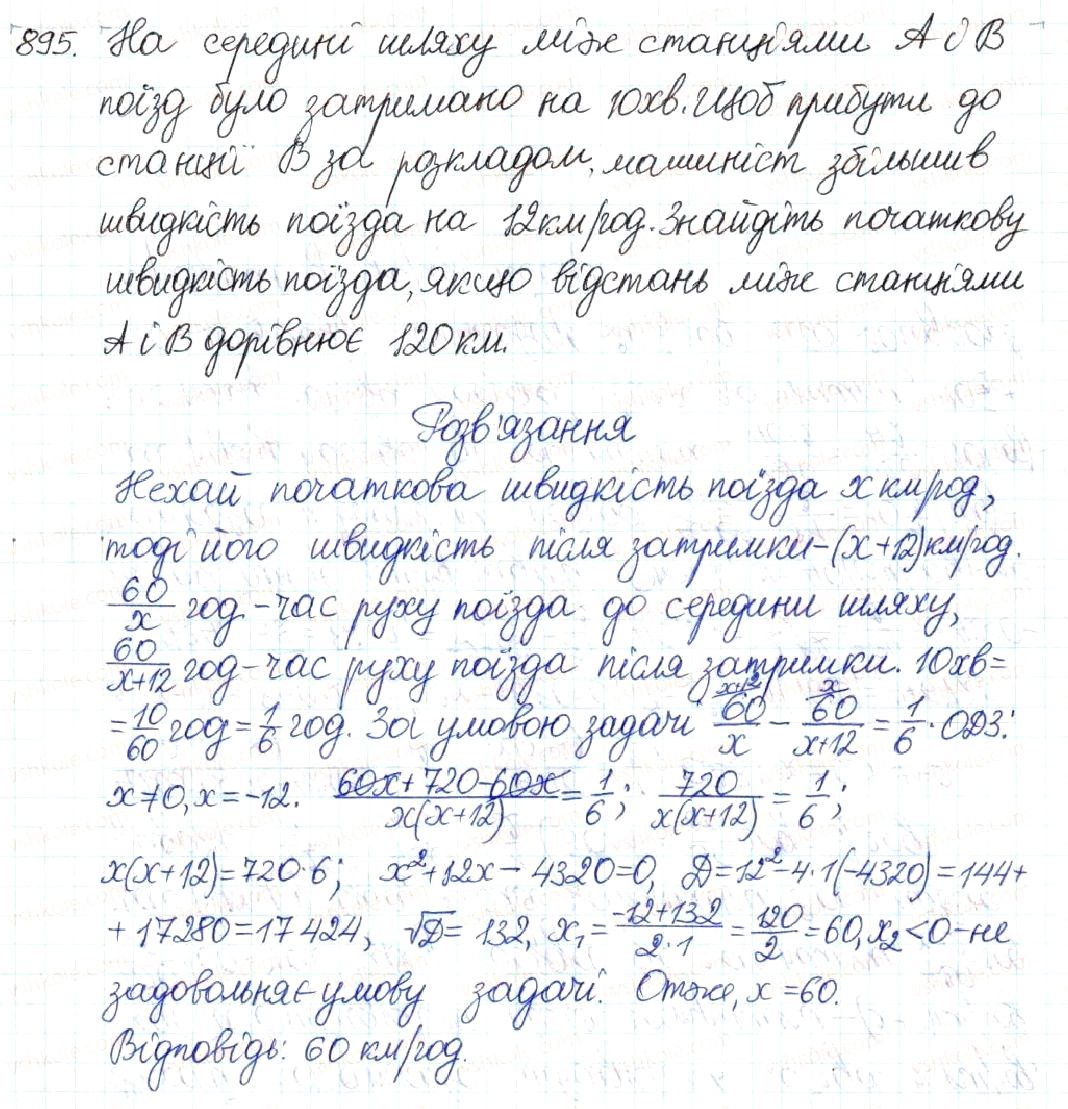 895. На середині шляху між станціями А і В
поїзд було затримано на 10хв. Щоб прибути до
станції В за розкладом, машиніст збільшив
швидкість поїзда на 12км/год. Знайдіть початкову
швидкість поїзда, якщо відстань між станціями
А і В дорівнює 120км.
Розв'язання
Нехай початкова швидкість поїзда x км/год,
тоді його швидкість після затримки-(x+12)км/год.
60/x год-час руху поїзда до середини шляху,
60/(x+12) год-час руху поїзда після затримки. 10хв=
=10/60 год=1/6 год. За умовою задачі x+12 60/x - x 60/(x+12) = 1/6. ОДЗ:
x≠0, x=-12. (60x+720-60x)/(x(x+12)) = 1/6; 720/(x(x+12)) = 1/6;
x(x+12)=720·6; x²+12x-4320=0, D=12²-4·1(-4320)=144+
+17280=17424, √D=132, x₁=(-12+132)/(2·1)=120/2=60, x₂<0-не
задовольняє умову задачі. Отже, x=60.
Відповідь: 60 км/год.